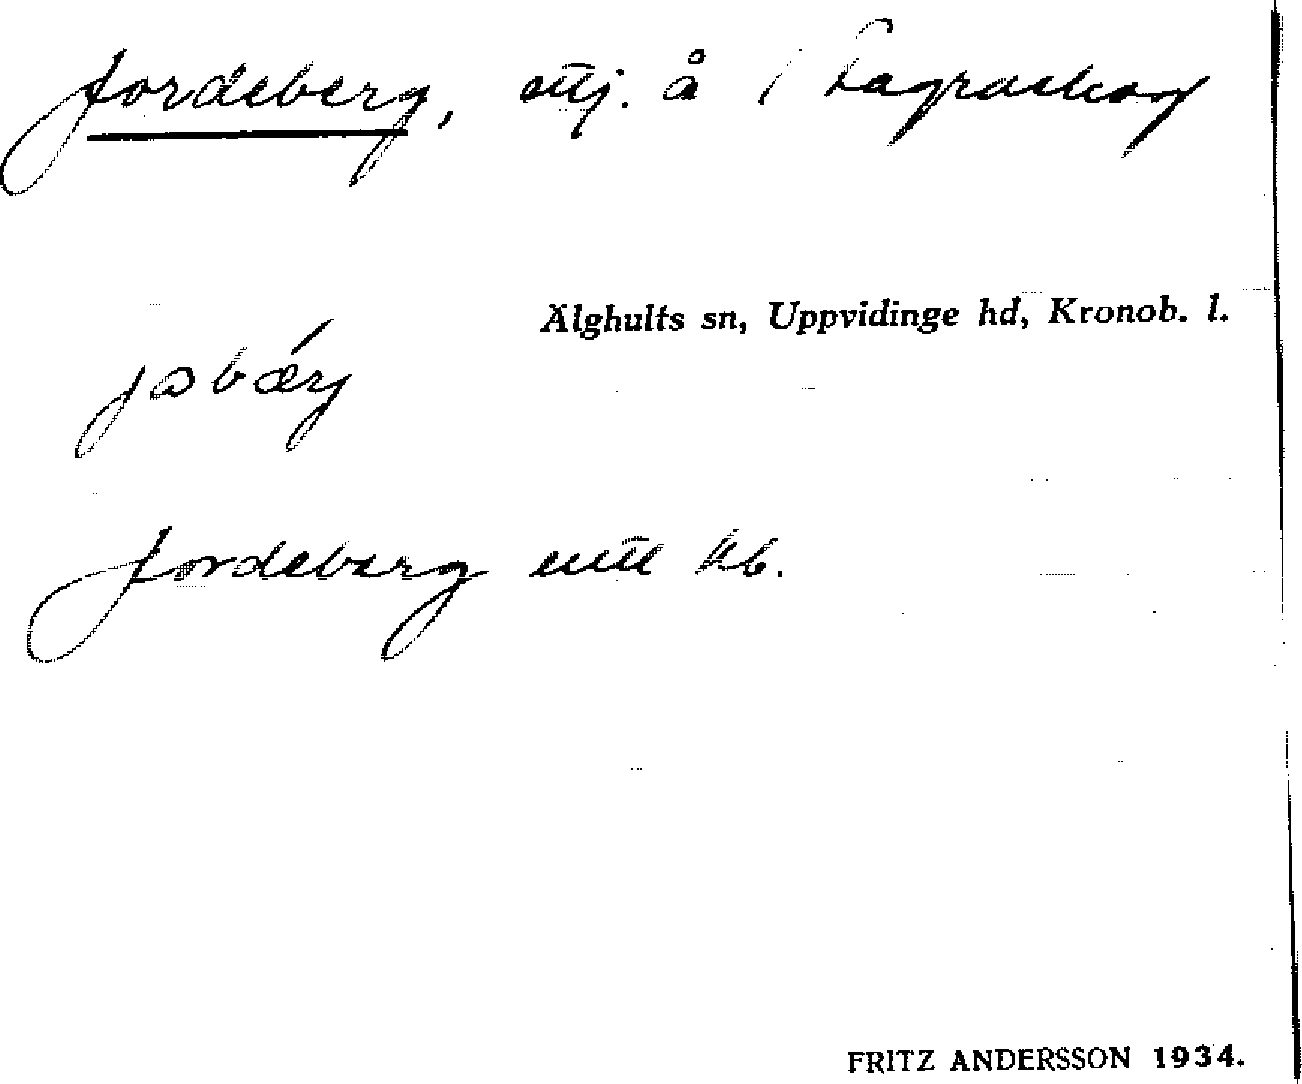 Jordeberg, ttj. å Fagraskog
Älghults sn, Uppvidinge hd, Kronob. l.
jobǽrj
Jordeberg enl kb.
FRITZ ANDERSSON 1934.